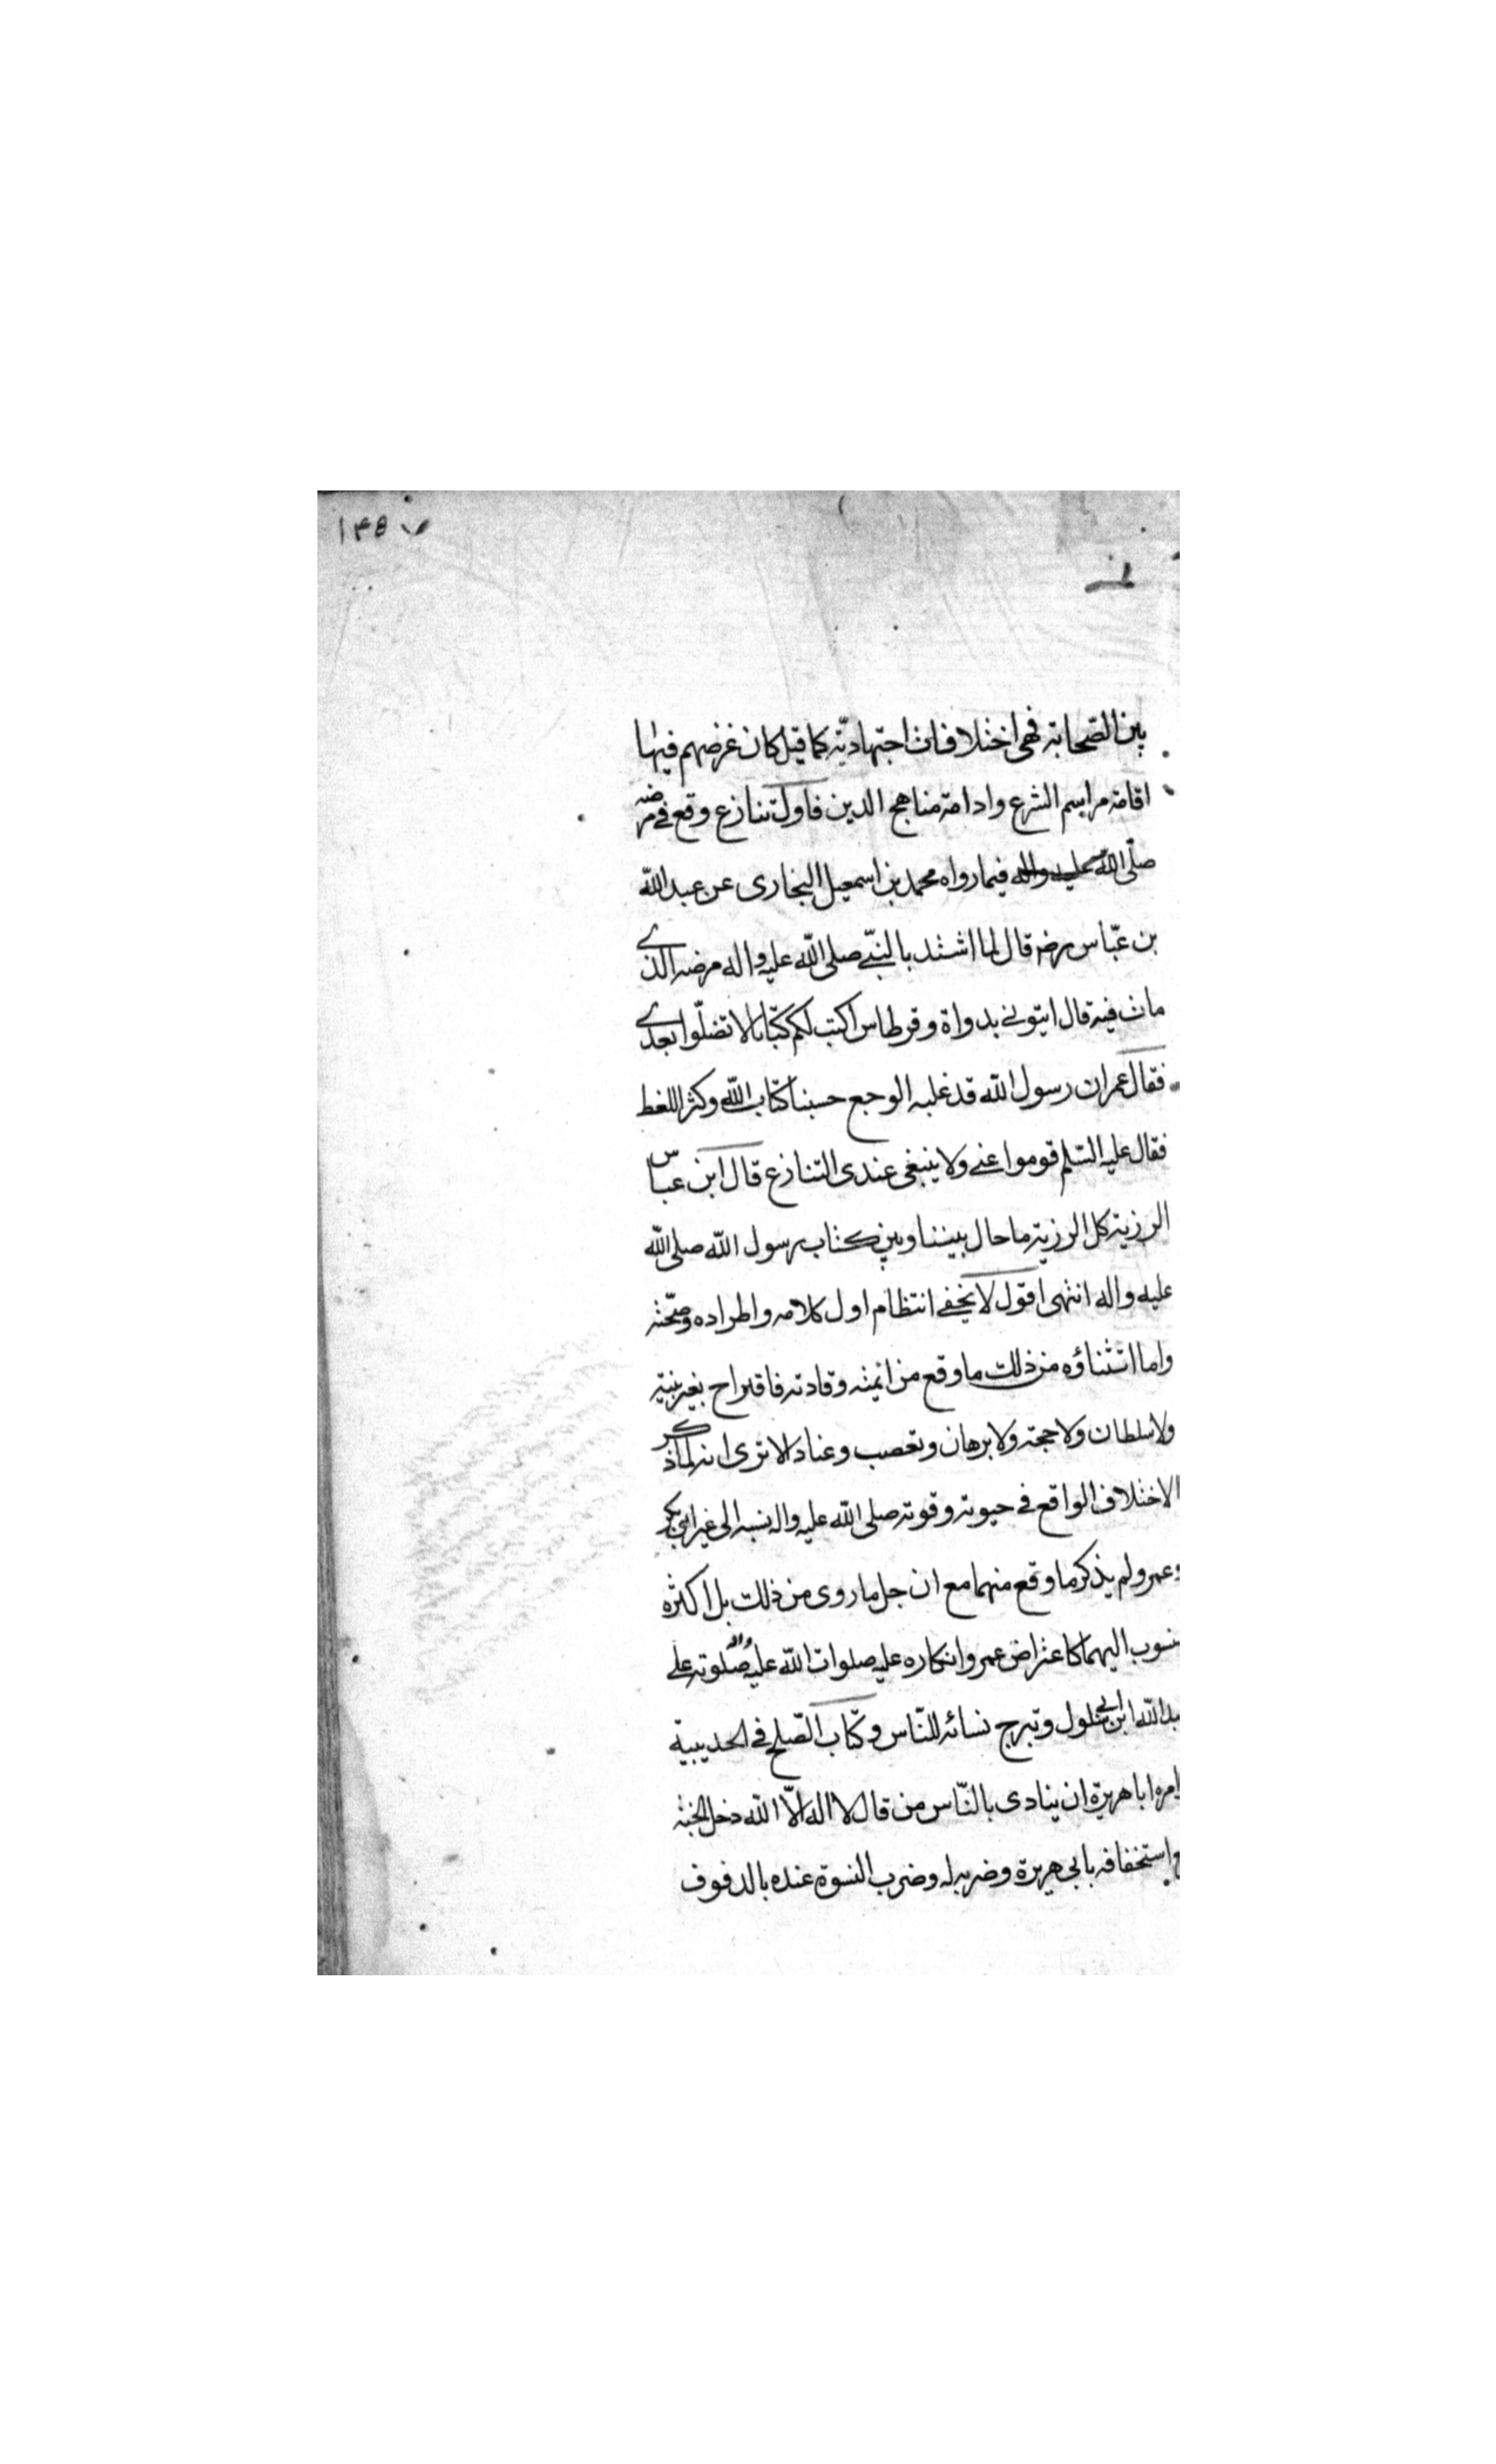 ۱۴۵۷
بين الصّحابة فهى اختلافات اجتهاديّة كما قيل كان غرضهم فيها
اقامة مراسم الشرع وادامة مناهج الدين فاول تنازع وقع فى مرضه
صلّى اللّه عليه واله فيما رواه محمد بن اسمعيل البخارى عن عبد اللّه
بن عبّاس رضه قال لما اشتد بالنبىّ صلى اللّه عليه واله مرضه الذى
مات فيه قال ايتونى بدواة وقرطاس اكتب لكم كتابا لا تضلّوا بعدى
فقال عمر ان رسول اللّه قد غلبه الوجع حسبنا كتاب اللّه وكثر اللغط
فقال عليه السّلم قوموا عنى ولا ينبغى عندى التنازع قال ابن عباس
الرزية كل الرزية ما حال بيننا وبين كتاب رسول اللّه صلى اللّه
عليه واله انتهى اقول لا يخفى انتظام اول كلامه واطراده وصحّته
واما استثناؤه من ذلك ما وقع من ائمته وقادته فاقتراح بغير بينة
ولا سلطان ولا حجة ولا برهان وتعصب وعناد الا ترى انه لما ذكر
الاختلاف الواقع فى حيوته وقوته صلى اللّه عليه واله نسبه الى غير ابى بكر
وعمر ولم يذكر ما وقع منهما مع ان جل ما روى من ذلك بل اكثره
نسوب اليهما كاعتراض عمر وانكاره عليه صلوات اللّه عليه واله صلوته على
بد اللّه ابن ابى سلول وتبرج نسائه للنّاس وكتاب الصّلح فى الحديبية
امره ابا هريرة ان ينادى بالنّاس من قال لا اله الّا اللّه دخل الجنة
واستخفافه بابى هريرة وضربه له وضرب النسوة عنده بالدفوف